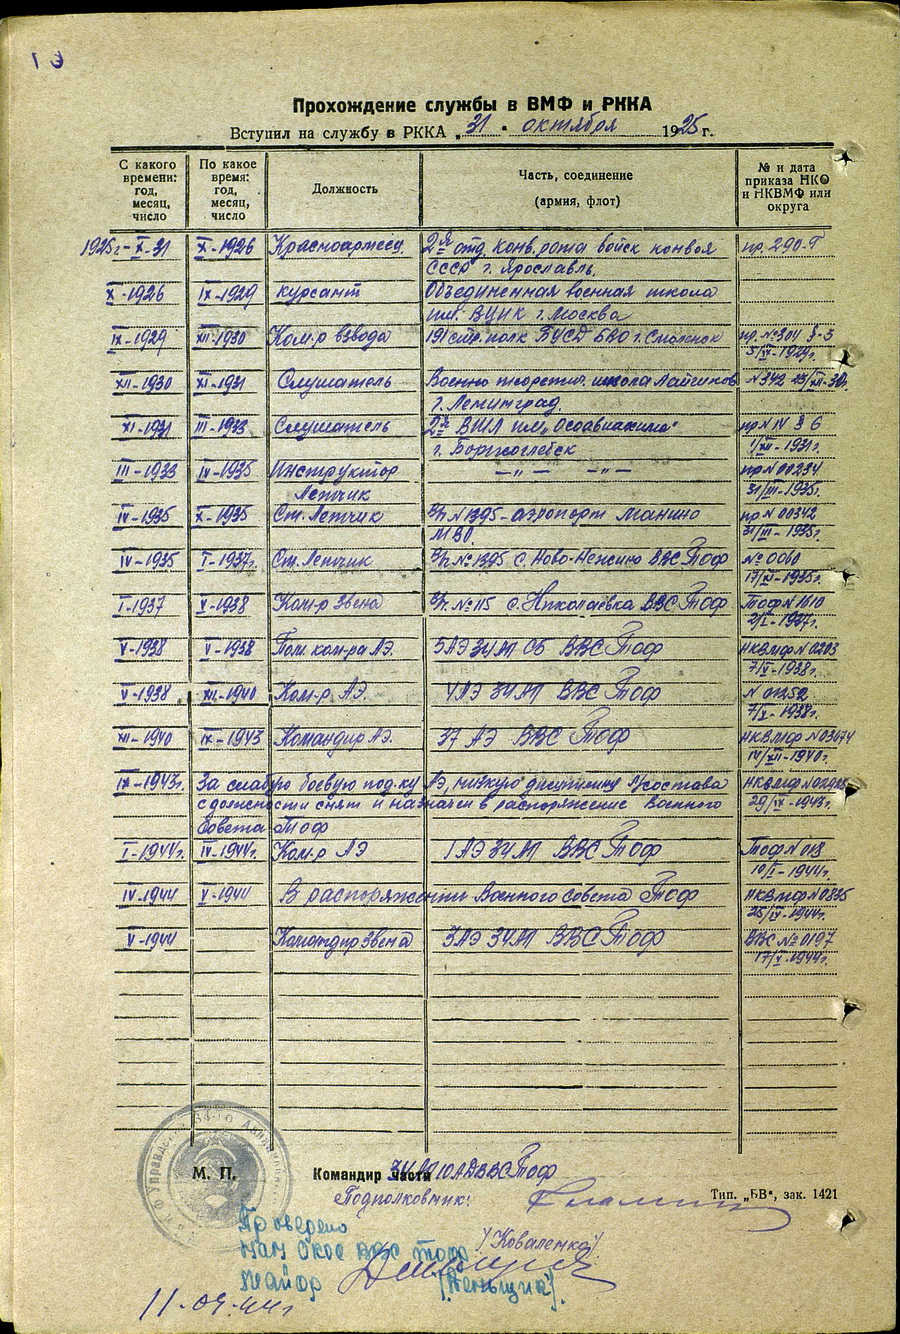 Прохождение службы в ВМФ и РККА
Вступил на службу в РККА „31" октября 1925 г.
С какого времени: год, месяц, число
По какое время: год, месяц, число
Должность
Часть, соединение (армия, флот)
№ и дата приказа НКО и НКВМФ или округа
1925г.-X-31 X-1926 Красноармеец 2я отд. конв. рота войск конвоя пр. 290-
СССР г. Ярославль.
X-1926 IX-1929 курсант Объединенная военная школа
им. ВЦИК г. Москва
IX-1929 XII-1930 Ком-р взвода 191 стр. полк БВО г. Смоленск пр. №304 §-3
5/IX-1929г.
XII-1930 XI-1931 Слушатель Военно теоретич. школа Летчиков N342 /XII-30г.
г. Ленинград
XI-1931 III-1933 Слушатель 2я ВШЛ им „Осоавиахима" пр N IV § 6
г. Борисоглебск 1/XII-1931г.
III-1933 IV-1935 Инструктор — „ — — „ — пр N 00234
Летчик 31/III-1935г.
IV-1935 X-1935 Ст. Летчик в/ч N 1395 - аэропорт Манино пр N 00342
МВО. 31/III-1935г.
IV-1935 I-1937г. Ст. Летчик в/ч №1395 с. Ново-Нежино ВВС Тоф № 0060
17/-1935г.
I-1937 V-1938 Ком-р Звена в/ч. №115 с. Николаевка ВВС Тоф Тоф N 1610
2/I-1937г.
V-1938 V-1938 Пом. ком-ра АЭ. 5АЭ 34 АП СБ ВВС Тоф НКВМФ N 0203
7/V-1938г.
V-1938 XII-1940 Ком-р. АЭ. 4АЭ 34 АП ВВС Тоф N 01252
7/V-1938г.
XII-1940 IX-1943 Командир АЭ. 37 АЭ ВВС Тоф НКВМф N 03674
14/XII-1940г.
IX-1943г. За слабую боевую под-ку АЭ, низкую дисциплину л/состава НКВМф
с должности снят и назначен в распоряжение Военного 29/IX-1943г.
Совета Тоф
I-1944г. IV-1944г. Ком-р АЭ 1 АЭ 34 АП ВВС Тоф Тоф N 013
10/I-1944г.
IV-1944 V-1944 В распоряжении Военного Совета Тоф НКВМф N 0835
25/IV-1944г.
V-1944 Командир Звена 3АЭ 34 АП ВВС Тоф ВВС № 0197
17/V-1944г.
М. П. Командир части 34 АП 10 АД ВВС Тоф
Подполковник:
Тип. „БВ", зак. 1421
/Коваленко/
Проверено
ВВС Тоф
Майор (Меньщик).